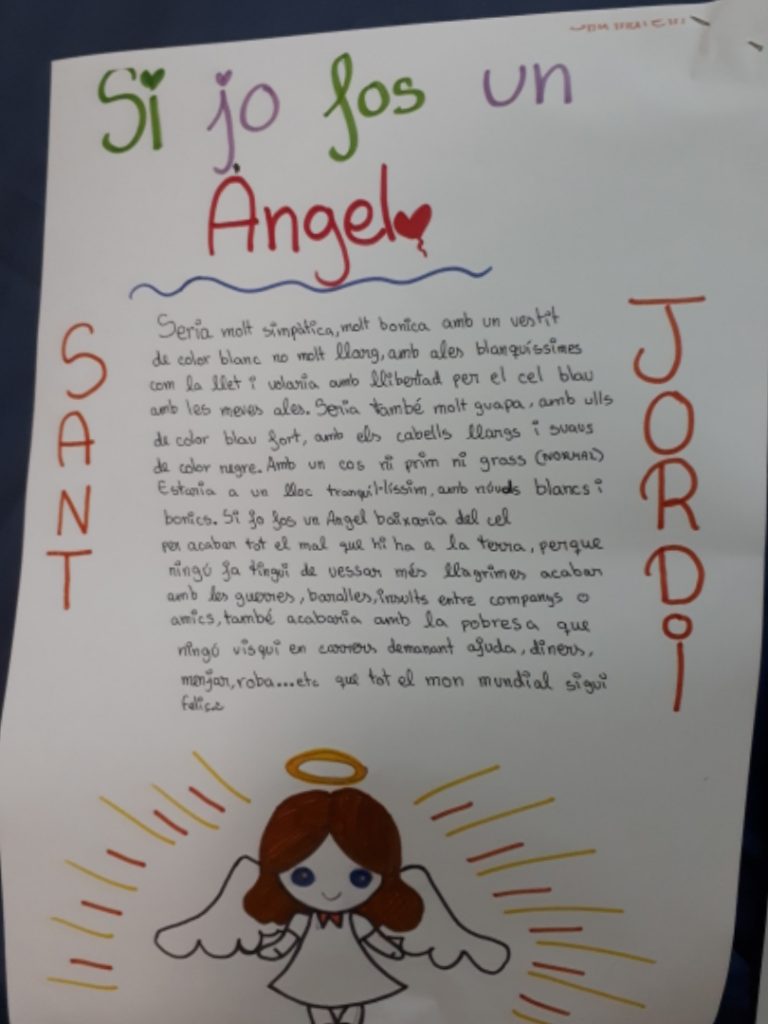 Si jo fos un
Àngel
SANT
JORDi
Seria molt simpàtica, molt bonica amb un vestit
de color blanc no molt llarg, amb ales blanquíssimes
com la llet i volaria amb llibertad per el cel blau
amb les meves ales. Seria també molt guapa, amb ulls
de color blau fort, amb els cabells llargs i suaus
de color negre. Amb un cos ni prim ni grass (NORMAL)
Estaria a un lloc tranquil·líssim, amb núvols blancs i
bonics. Si jo fos un Angel baixaria del cel
per acabar tot el mal que hi ha a la terra, perque
ningú ja tingui de vessar més llagrimes acabar
amb les guerres, baralles, insults entre companys o
amics, també acabaria amb la pobresa que
ningú visqui en carrers demanant ajuda, diners,
menjar, roba...etc que tot el mon mundial sigui
feliç.